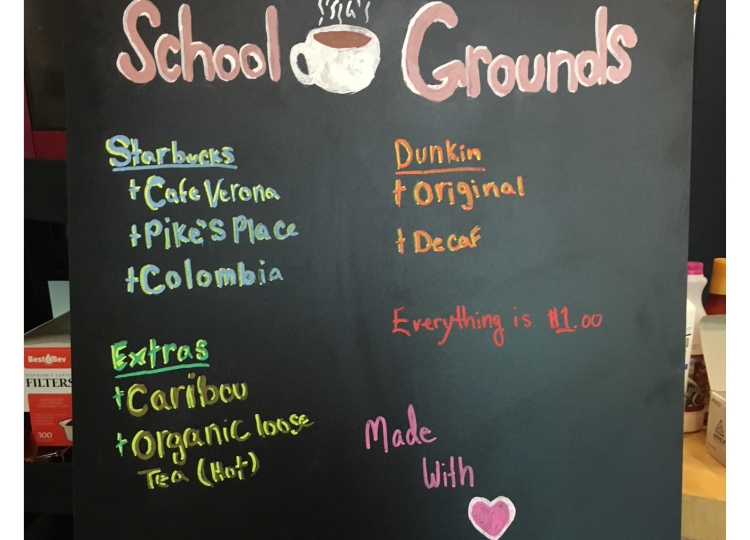 School Grounds
Starbucks
+Cafe Verona
+Pike's Place
+Colombia
Extras
+Caribou
+Organic loose
Tea (Hot)
Dunkin
+Original
+Decaf
Everything is $1.00
Made
With
Best Bev
FILTERS
300